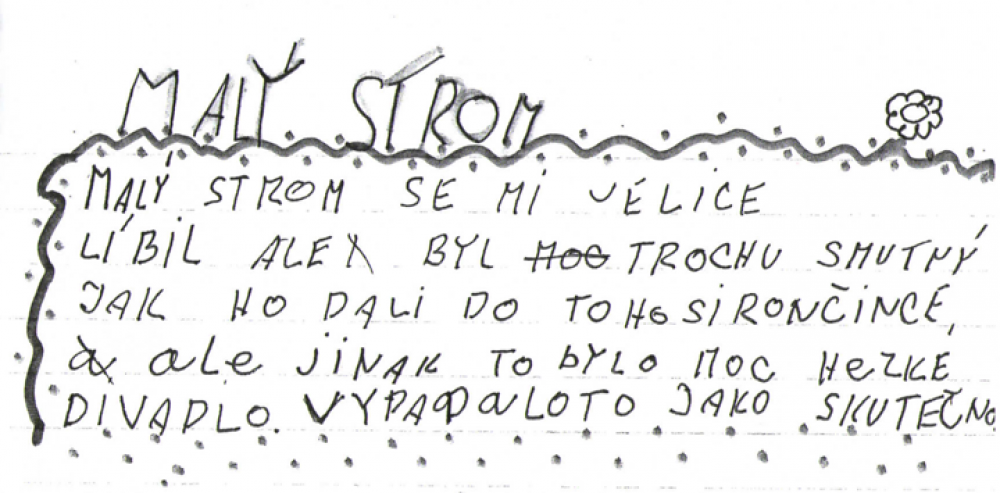 MALÝ STROM
MALÝ STROM SE MI VELICE
LÍBIL ALEX BYL MOC TROCHU SMUTNÝ
JAK HO DALI DO TOHO SIRONČINCE,
a ale JINAK TO BYLO MOC HEZKE
DIVADLO. VYPADALO TO JAKO SKUTEČNO